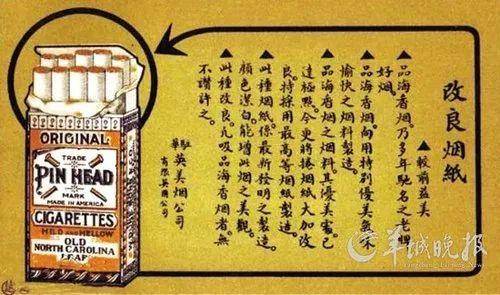 改良烟紙
▲較前益美
▲品海香烟乃多年馳名之老牌
好烟。
▲品海香烟向用特別優美
愉快之烟料製造。
▲品海香烟之烟料其優美實已
達極點。今更将捲烟紙大加改
良。特採用最高等烟紙製造。
▲此種烟紙係最新發明之製造。
顏色潔白。能增此烟之美觀。
▲此種改良。凡吸品海香烟者。無
不讚許之。
駐華
英美烟公司
有限英國公司
ORIGINAL
TRADE
PIN HEAD
MARK
MADE IN AMERICA
CIGARETTES
MILD AND MELLOW
OLD
NORTH CAROLINA
LEAF
羊城晚报
Yangcheng Evening News